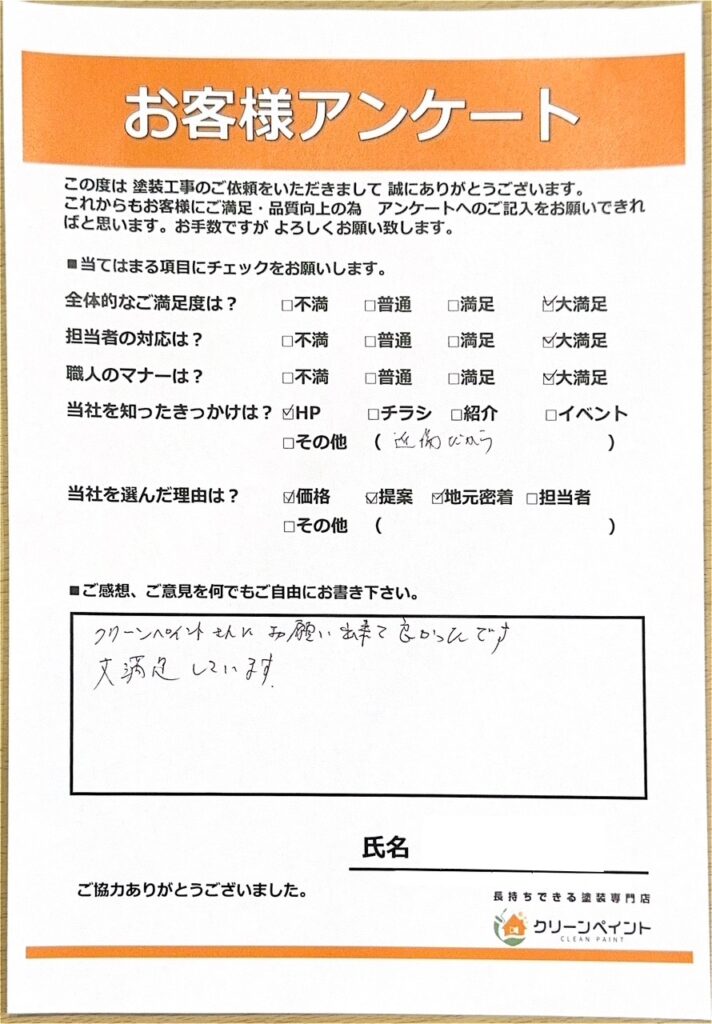 お客様アンケート
この度は 塗装工事のご依頼をいただきまして 誠にありがとうございます。
これからもお客様にご満足・品質向上の為　アンケートへのご記入をお願いできれ
ばと思います。お手数ですが よろしくお願い致します。
■当てはまる項目にチェックをお願いします。
全体的なご満足度は？ □不満 □普通 □満足 ☑大満足
担当者の対応は？ □不満 □普通 □満足 ☑大満足
職人のマナーは？ □不満 □普通 □満足 ☑大満足
当社を知ったきっかけは？ ☑HP □チラシ □紹介 □イベント
□その他 （ 近隣だから ）
当社を選んだ理由は？ ☑価格 ☑提案 ☑地元密着 □担当者
□その他 （ ）
■ご感想、ご意見を何でもご自由にお書き下さい。
クリーンペイントさんにお願い出来て良かったです
大満足しています。
氏名
ご協力ありがとうございました。
長持ちできる塗装専門店
クリーンペイント
CLEAN PAINT